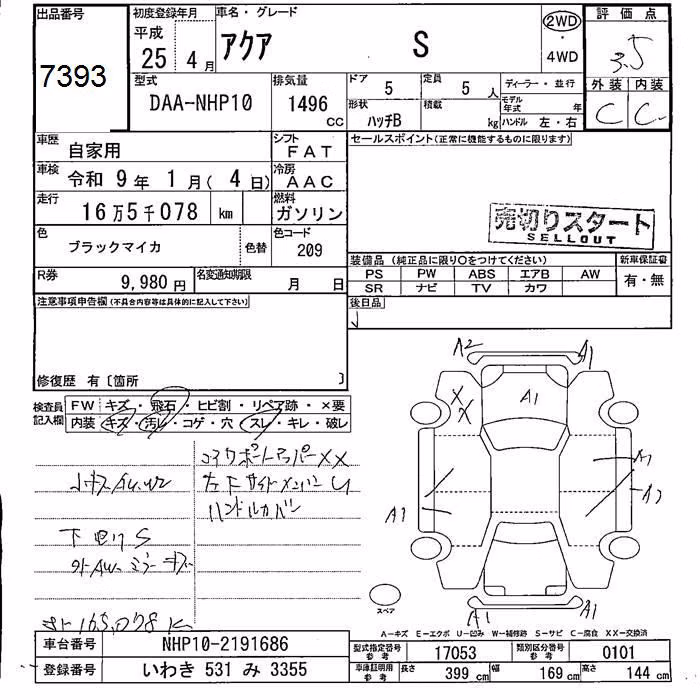 出品番号
7393
初度登録年月
平成
25 4 月
車名・グレード
アクア S
2WD
・
4WD
評価点
3.5
外装 内装
C C
型式
DAA-NHP10
排気量
1496
CC
ドア 5
定員 5 人
形状 ハッチB
積載 kg
ディーラー・並行
モデル年式 年
ハンドル 左・右
車歴 自家用
シフト FAT
車検 令和 9 年 1 月 ( 4 日)
冷房 AAC
走行 16 万 5 千 078 km
燃料 ガソリン
色 ブラックマイカ 色替
色コード 209
R券 9,980 円
名変通知期限 月 日
セールスポイント(正常に機能するものに限ります)
売切りスタート
SELLOUT
装備品 (純正品に限り〇をつけてください)
新車保証書
PS PW ABS エアB AW
SR ナビ TV カワ
有・無
後日品
注意事項申告欄(不具合内容等は具体的に記入して下さい)
修復歴 有〔箇所 〕
検査員記入欄
FW キズ・飛石・ヒビ割・リペア跡・×要
内装 キズ・汚レ・コゲ・穴・スレ・キレ・破レ
コアサポートアッパーXX
左下サイドメンバーU
ハンドルカバー
下回りS
165,078 K
A2 A1
A1
X
X
A1
A1
A2
A1 A1
スペア
A-キズ E-エクボ U-凹み W-補修跡 S-サビ C-腐食 XX-交換済
車台番号 NHP10-2191686
登録番号 いわき 531 み 3355
型式指定番号 参考 17053
類別区分番号 参考 0101
車庫証明用 参考 長さ 399 cm 幅 169 cm 高さ 144 cm